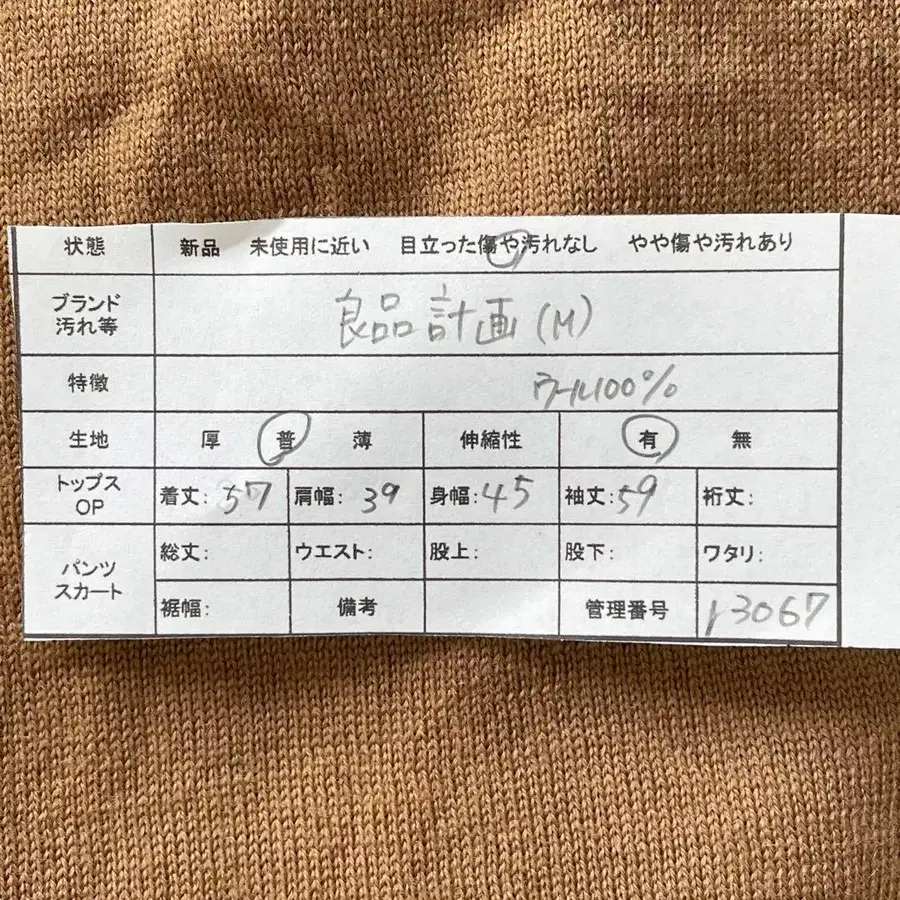 状態 新品 未使用に近い 目立った傷や汚れなし やや傷や汚れあり
ブランド
汚れ等
良品計画(M)
特徴 ウール100%
生地 厚 普 薄 伸縮性 有 無
トップス
OP
着丈: 57 肩幅: 39 身幅: 45 袖丈: 59 裄丈:
パンツ
スカート
総丈: ウエスト: 股上: 股下: ワタリ:
裾幅: 備考 管理番号 y3067